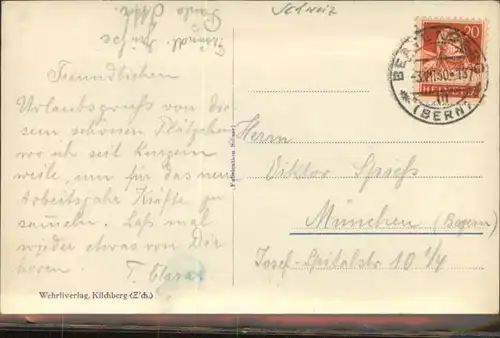 Schweiz
Freundlichen
Urlaubsgruß von die-
sem schönen Plätzchen
wo ich seit kurzem
weile, um für das neue
Arbeitsjahr Kräfte zu
sammeln. Laß mal
wieder etwas von Dir
hören.
Wehrliverlag, Kilchberg (Z'ch.)
20
HELVETIA
(BERN)
Herrn
Viktor Spieß
München (Bayern)
Josef-Spitalstr 10 I/4